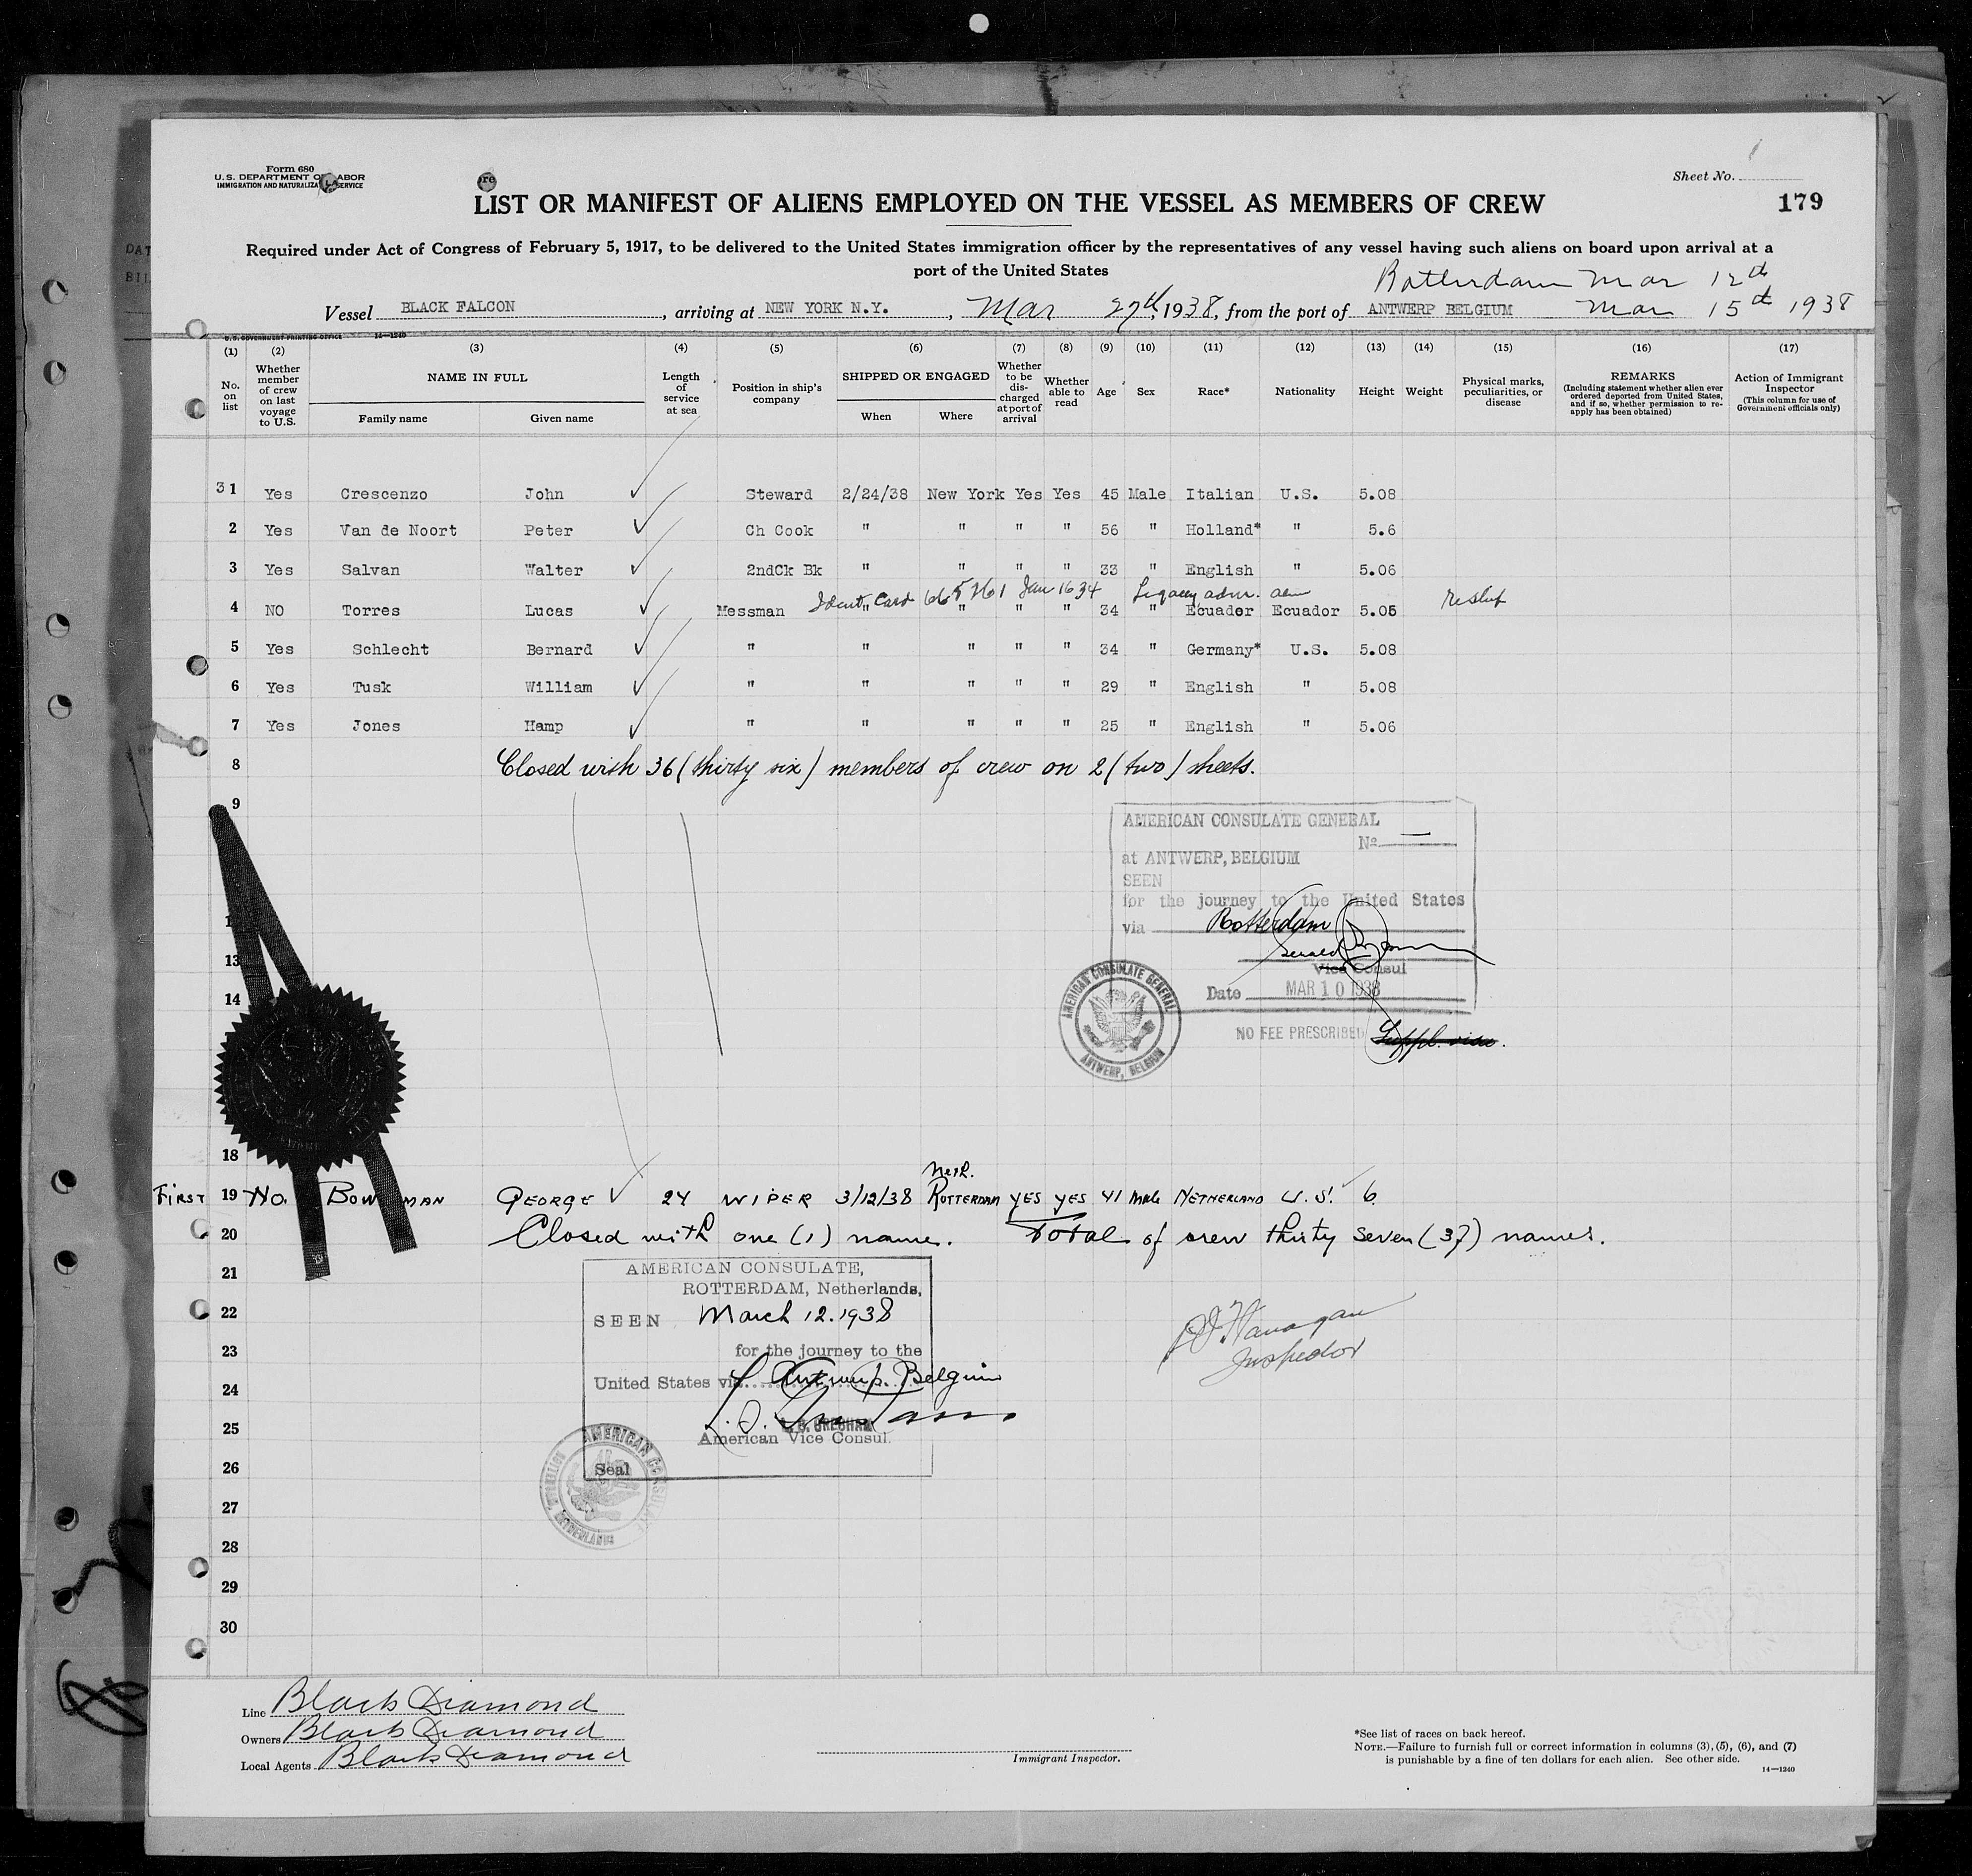 Form 680
U.S. DEPARTMENT OF LABOR
IMMIGRATION AND NATURALIZA SERVICE
Sheet No.
179
LIST OR MANIFEST OF ALIENS EMPLOYED ON THE VESSEL AS MEMBERS OF CREW
Required under Act of Congress of February 5, 1917, to be delivered to the United States immigration officer by the representatives of any vessel having such aliens on board upon arrival at a
port of the United States
Rotterdam Mar 12th
Vessel BLACK FALCON, arriving at NEW YORK N.Y., Mar 27th, 1938, from the port of ANTWERP BELGIUM Mar 15th 1938
U.S. GOVERNMENT PRINTING OFFICE 14—1240
(1) No. on list
(2) Whether member of crew on last voyage to U.S.
(3) NAME IN FULL Family name Given name
(4) Length of service at sea
(5) Position in ship's company
(6) SHIPPED OR ENGAGED When Where
(7) Whether to be discharged at port of arrival
(8) Whether able to read
(9) Age
(10) Sex
(11) Race*
(12) Nationality
(13) Height
(14) Weight
(15) Physical marks, peculiarities, or disease
(16) REMARKS (Including statement whether alien ever ordered deported from United States, and if so, whether permission to reapply has been obtained)
(17) Action of Immigrant Inspector (This column for use of Government officials only)
31 Yes Crescenzo John Steward 2/24/38 New York Yes Yes 45 Male Italian U.S. 5.08
2 Yes Van de Noort Peter Ch Cook " " " " 56 " Holland* " 5.6
3 Yes Salvan Walter 2ndCk Bk " " " " 33 " English " 5.06
Ident Card 665761 Jan 16 34 Legally adm.
4 NO Torres Lucas Messman " " " " 34 " Ecuador Ecuador 5.05
5 Yes Schlecht Bernard " " " " " 34 " Germany* U.S. 5.08
6 Yes Tusk William " " " " " 29 " English " 5.08
7 Yes Jones Hamp " " " " " 25 " English " 5.06
8 Closed with 36 (thirty six) members of crew on 2 (two) sheets.
9
AMERICAN CONSULATE GENERAL
No —
at ANTWERP, BELGIUM
SEEN
for the journey to the United States
via Rotterdam
Vice Consul
Date MAR 10 1938
NO FEE PRESCRIBED Suppl. visa.
AMERICAN CONSULATE GENERAL
ANTWERP, BELGIUM
13
14
18
Neth.
FIRST 19 No. BOWMAN GEORGE 24 WIPER 3/12/38 ROTTERDAM YES YES 41 Male NETHERLAND U.S. 6
20 Closed with one (1) name. Total of crew thirty seven (37) names.
21
22
23
24
25
26
27
28
29
30
AMERICAN CONSULATE,
ROTTERDAM, Netherlands,
SEEN March 12. 1938
for the journey to the
United States via Antwerp. Belgium
American Vice Consul.
Seal
AMERICAN CONSULATE
ROTTERDAM
NETHERLANDS
Flanagan
Inspector
Line Black Diamond
Owners Black Diamond
Local Agents Black Diamond
Immigrant Inspector.
*See list of races on back hereof.
NOTE.—Failure to furnish full or correct information in columns (3), (5), (6), and (7)
is punishable by a fine of ten dollars for each alien. See other side.
14—1240